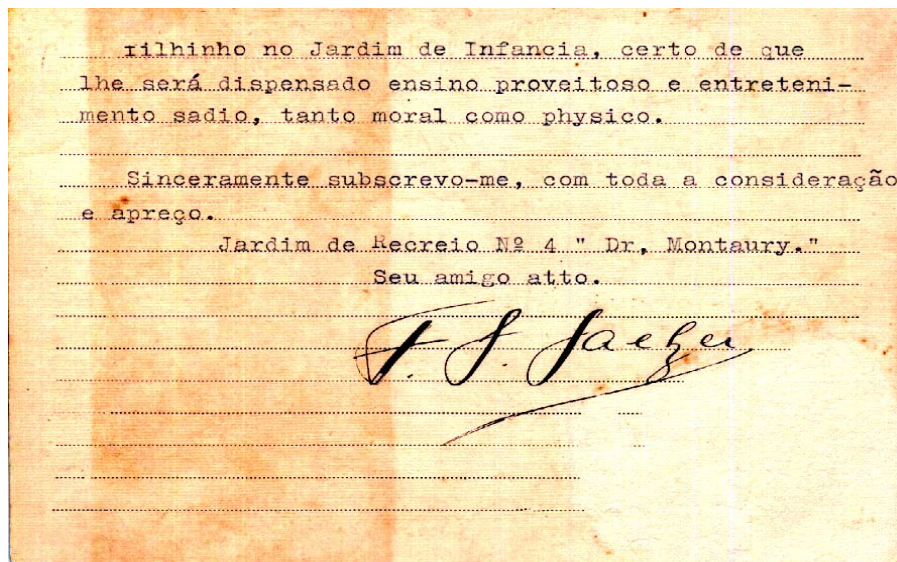 filhinho no Jardim de Infancia, certo de que
lhe será dispensado ensino proveitoso e entreteni-
mento sadio, tanto moral como physico.
Sinceramente subscrevo-me, com toda a consideração
e apreço.
Jardim de Recreio Nº 4 " Dr, Montaury."
Seu amigo atto.